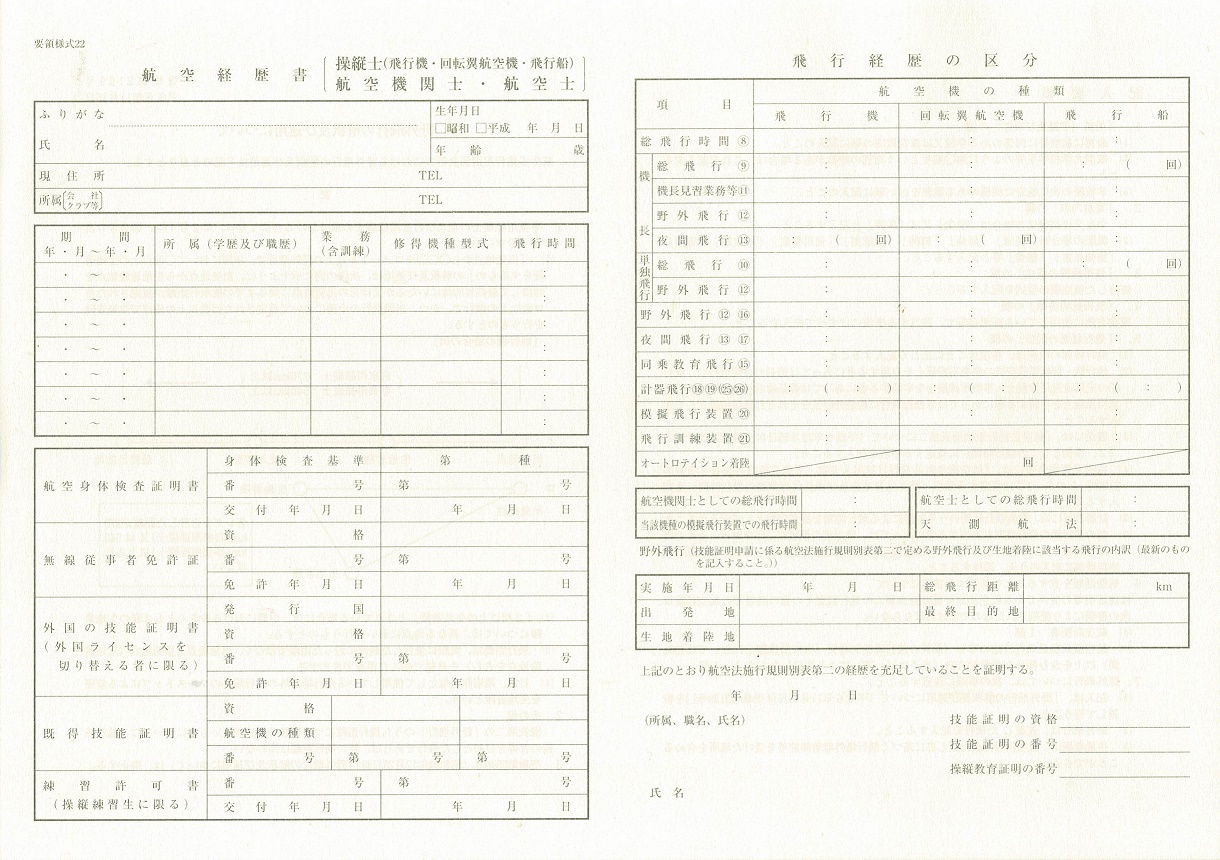 要領様式22
航空経歴書
操縦士(飛行機・回転翼航空機・飛行船)
航空機関士・航空士
ふりがな
氏名
生年月日
□昭和 □平成 年 月 日
年齢 歳
現住所 TEL
所属(会社クラブ等) TEL
期間
年・月~年・月
所属(学歴及び職歴)
業務
(含訓練)
修得機種型式
飛行時間
・ ~ ・ :
・ ~ ・ :
・ ~ ・ :
・ ~ ・ :
・ ~ ・ :
・ ~ ・ :
・ ~ ・ :
航空身体検査証明書
身体検査基準 第 種
番号 第 号
交付年月日 年 月 日
無線従事者免許証
資格
番号 第 号
免許年月日 年 月 日
外国の技能証明書
(外国ライセンスを
切り替える者に限る)
発行国
資格
番号 第 号
免許年月日 年 月 日
既得技能証明書
資格
航空機の種類
番号 第 号 第 号
練習許可書
(操縦練習生に限る)
番号 第 号
交付年月日 年 月 日
飛行経歴の区分
項目
航空機の種類
飛行機 回転翼航空機 飛行船
総飛行時間⑧ : : :
機長
総飛行⑨ : : : ( 回)
機長見習業務等⑪ : : :
野外飛行⑫ : : :
夜間飛行⑬ : ( 回) : ( 回) :
単独飛行
総飛行⑩ : : : ( 回)
野外飛行⑫ : : :
野外飛行⑫⑯ : : :
夜間飛行⑬⑰ : : :
同乗教育飛行⑮ : : :
計器飛行⑱⑲(㉕㉖) : ( : ) : ( : ) : ( : )
模擬飛行装置⑳ : : :
飛行訓練装置㉑ : : :
オートロテイション着陸 回
航空機関士としての総飛行時間 :
当該機種の模擬飛行装置での飛行時間 :
航空士としての総飛行時間 :
天測航法 :
野外飛行(技能証明申請に係る航空法施行規則別表第二で定める野外飛行及び生地着陸に該当する飛行の内訳(最新のもの
を記入すること。))
実施年月日 年 月 日 総飛行距離 km
出発地 最終目的地
生地着陸地
上記のとおり航空法施行規則別表第二の経歴を充足していることを証明する。
年 月 日
(所属、職名、氏名)
技能証明の資格
技能証明の番号
操縦教育証明の番号
氏名